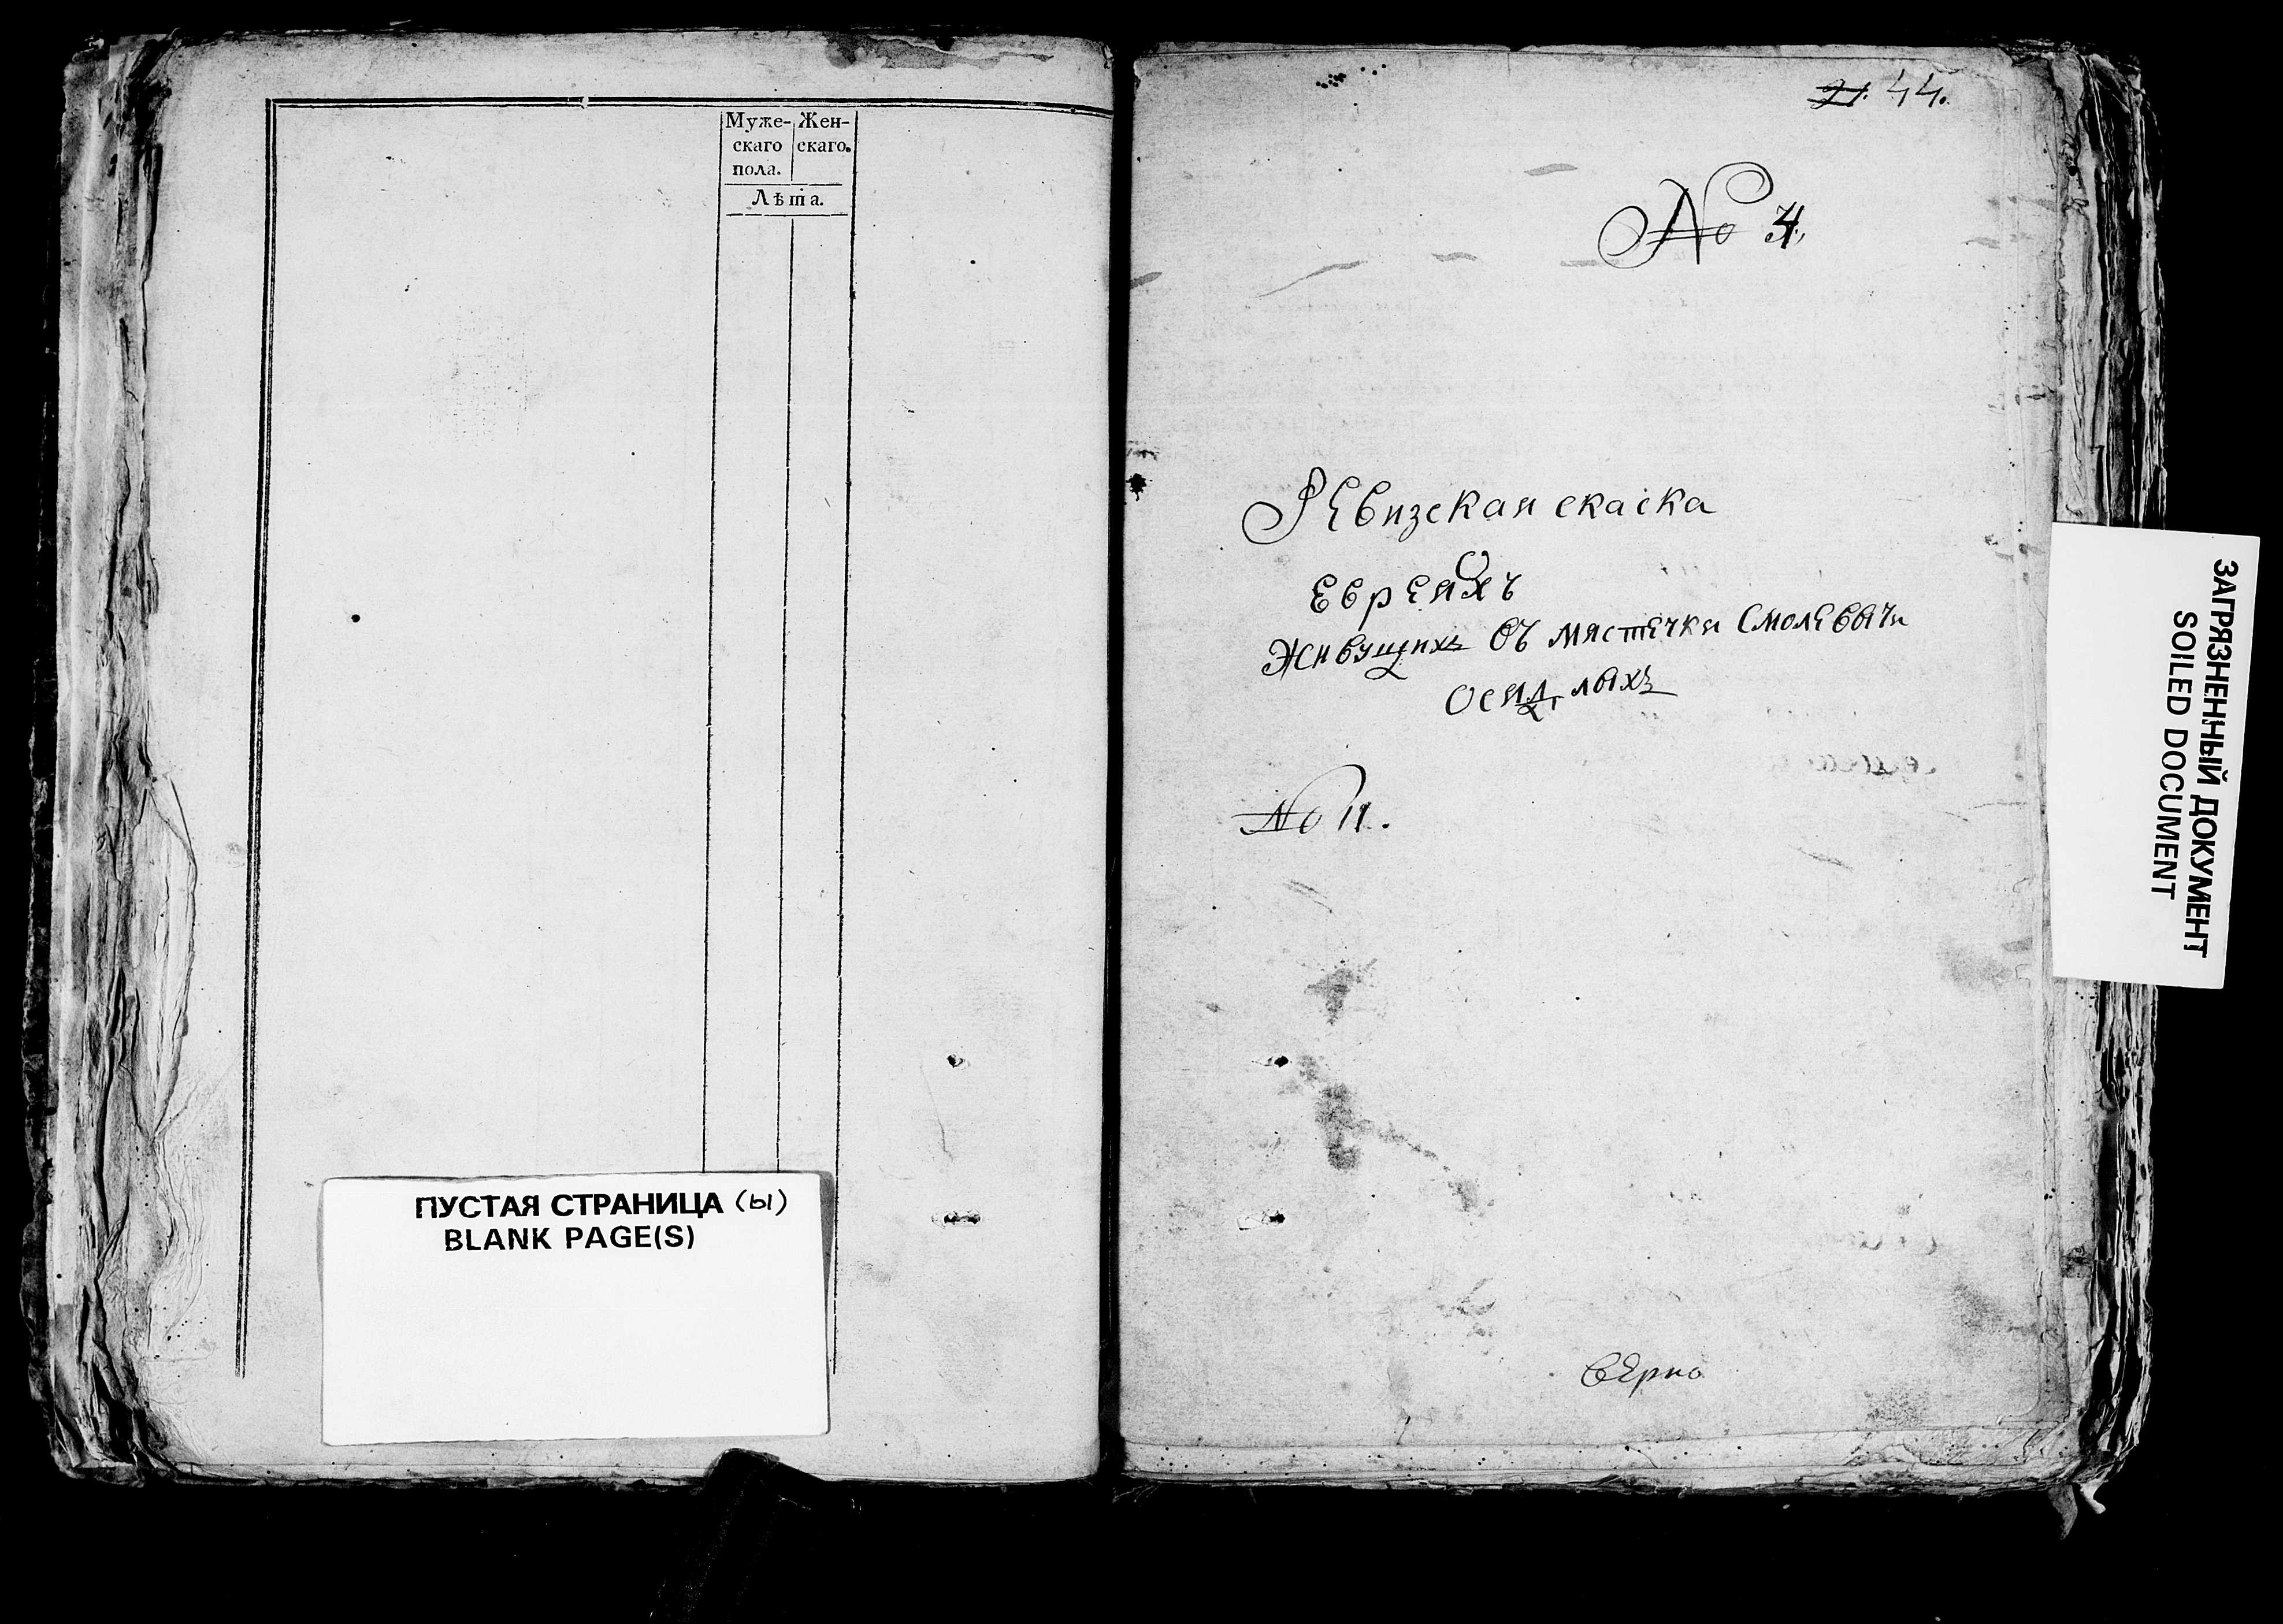 Муже- Жен-
скаго скаго.
пола.
Лѣта.
ПУСТАЯ СТРАНИЦА (ы)
BLANK PAGE(S)
21. 44.
№ 4.
Ревизская скаска
О
Евреяхъ
Живущихъ въ мястечки Смолевычи
осидлыхъ
№ 11.
вѣрно
ЗАГРЯЗНЕННЫЙ ДОКУМЕНТ
SOILED DOCUMENT